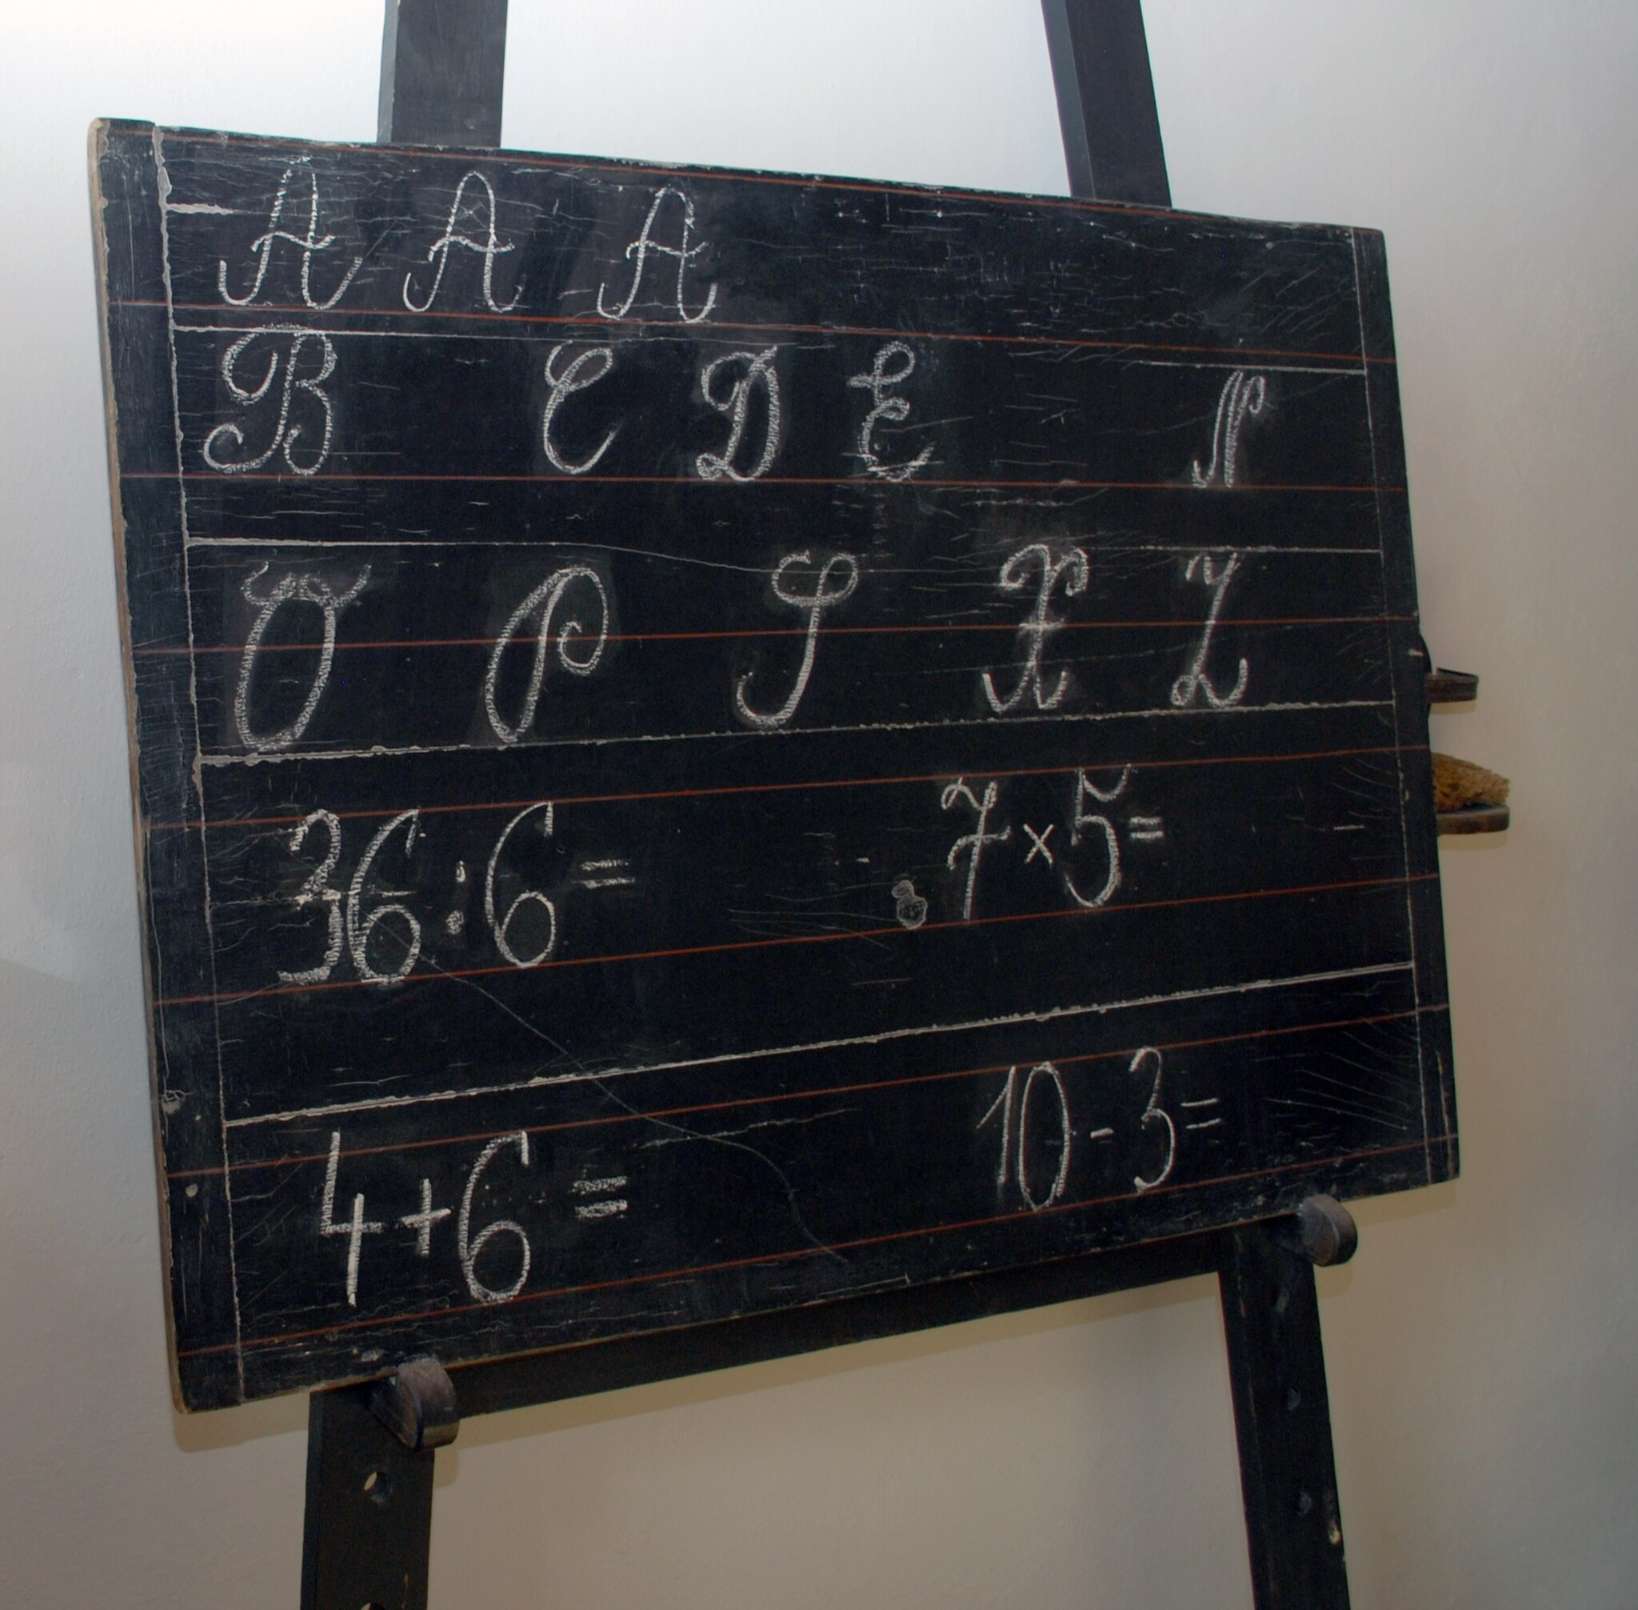 A A A
B C D E N
O P S X Z
36:6= 7×5=
4+6= 10-3=